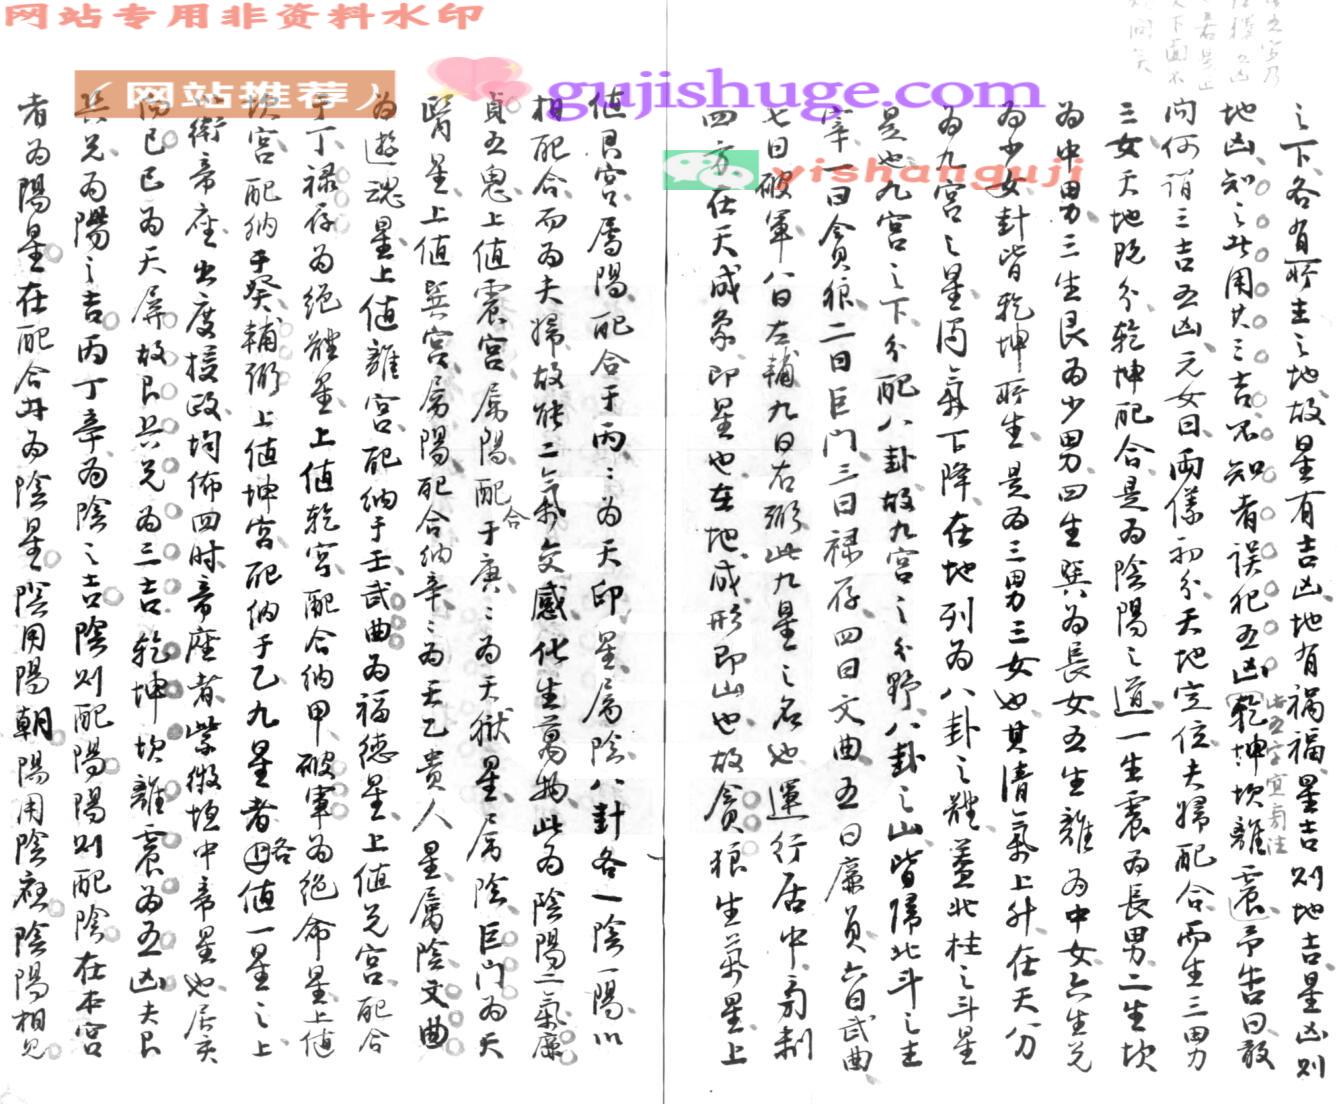 网站专用非资料水印
(网站推荐)
gujishuge.com
yishanguji
之下各有所主之地故星有吉凶地有禍福星吉則地吉星凶則
地凶知之此用其三吉不知者誤犯五凶乾坤坎離震予告曰敢
此五字宜旁注
問何謂三吉五凶元女曰兩儀初分天地定位夫婦配合而生三男
三女天地既分乾坤配合是為陰陽之道一生震為長男二生坎
為中男三生艮為少男四生巽為長女五生離為中女六生兌
為少女卦皆乾坤所生是為三男三女也其清氣上升在天分
為九宮之星濁氣下降在地列為八卦之體蓋北柱之斗星
是也九宮之下分配八卦故九宮之分野八卦之山皆歸北斗之主
宰一曰貪狼二曰巨門三曰祿存四曰文曲五曰廉貞六曰武曲
七曰破軍八曰左輔九曰右弼此九星之名也運行居中制
四方在天成象即星也在地成形即山也故貪狼生氣星上
値艮宮屬陽配合于丙丙為天印星屬陰八卦各一陰一陽以
相配合而為夫婦故能二氣交感化生萬物此為陰陽二氣廉
貞五鬼上値震宮屬陽配合于庚庚為天獄星屬陰巨門為天
醫星上値巽宮屬陽配合納辛辛為天乙貴人星屬陰文曲
為遊魂星上値離宮配納于壬武曲為福德星上値兌宮配合
于丁祿存為絕體星上値乾宮配合納甲破軍為絕命星上値
坎宮配納于癸輔弼上値坤宮配納于乙九星者各値一星之上
衛帝座出度接政均佈四时帝座者紫微垣中帝星也居亥
向巳巳為天屏故艮巽兌為三吉乾坤坎離震為五凶夫艮
巽兌為陽之吉丙丁辛為陰之吉陰則配陽陽則配陰在本宮
者為陽星在配合者為陰星陰用陽朝陽用陰應陰陽相見